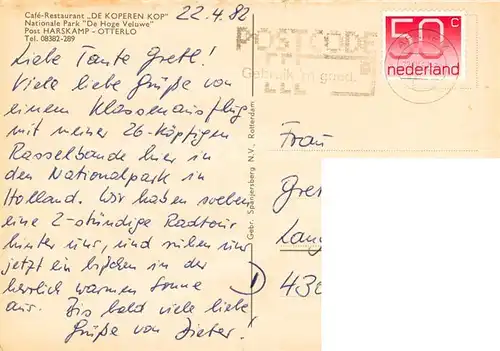 Café-Restaurant „DE KOPEREN KOP"
Nationale Park "De Hoge Veluwe"
Post HARSKAMP - OTTERLO
Tel. 08382-289
22.4.82
Liebe Tante Gretl!
Viele liebe Grüße von
einem Klassenausflug
mit meiner 26-köpfigen
Rasselbande hier in
den Nationalpark in
Holland. Wir haben soeben
eine 2-stündige Radtour
hinter uns, und ruhen uns
jetzt ein bißchen in der
herrlich warmen Sonne
aus. Bis bald viele liebe
Grüße von Dieter!
Gebr. Spanjersberg N.V., Rotterdam
POSTCODE
Gebruik 'm goed.
50 c
nederland
Frau
Gre
Lang
430